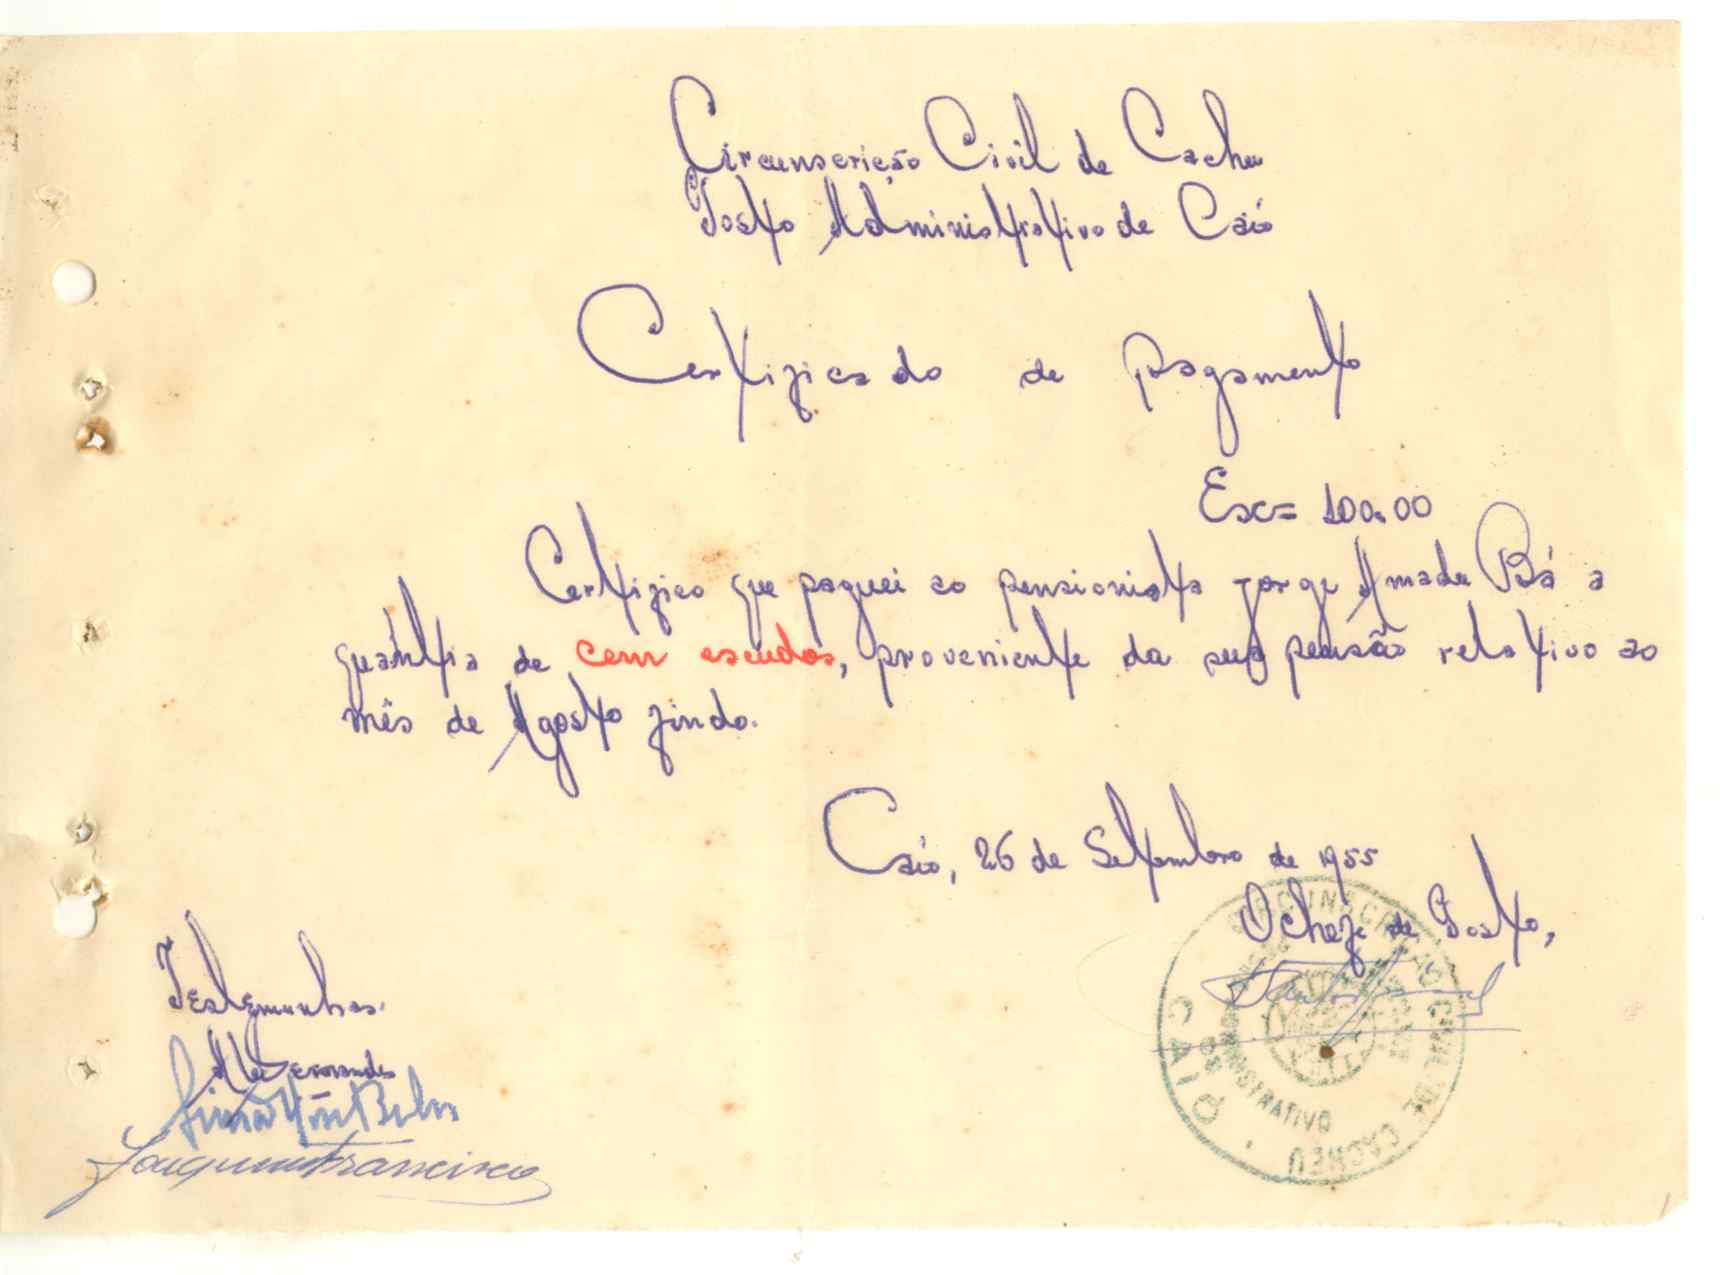 Circunscrição Civil de Cacheu
Posto Administrativo de Caió
Certificado de pagamento
Esc= 100.00
Certifico que paguei ao pensionista Jorge Amadu Bá a
quántia de cem escudos, proveniente da sua pensão relativo ao
mês de Agosto findo.
Caió, 26 de Setembro de 1955
O chefe de Posto,
CIRCUNSCRIÇÃO CIVIL DE CACHEU
ADMINISTRATIVO DE
CAIÓ
Testemunhas.
Joaquim Francisco